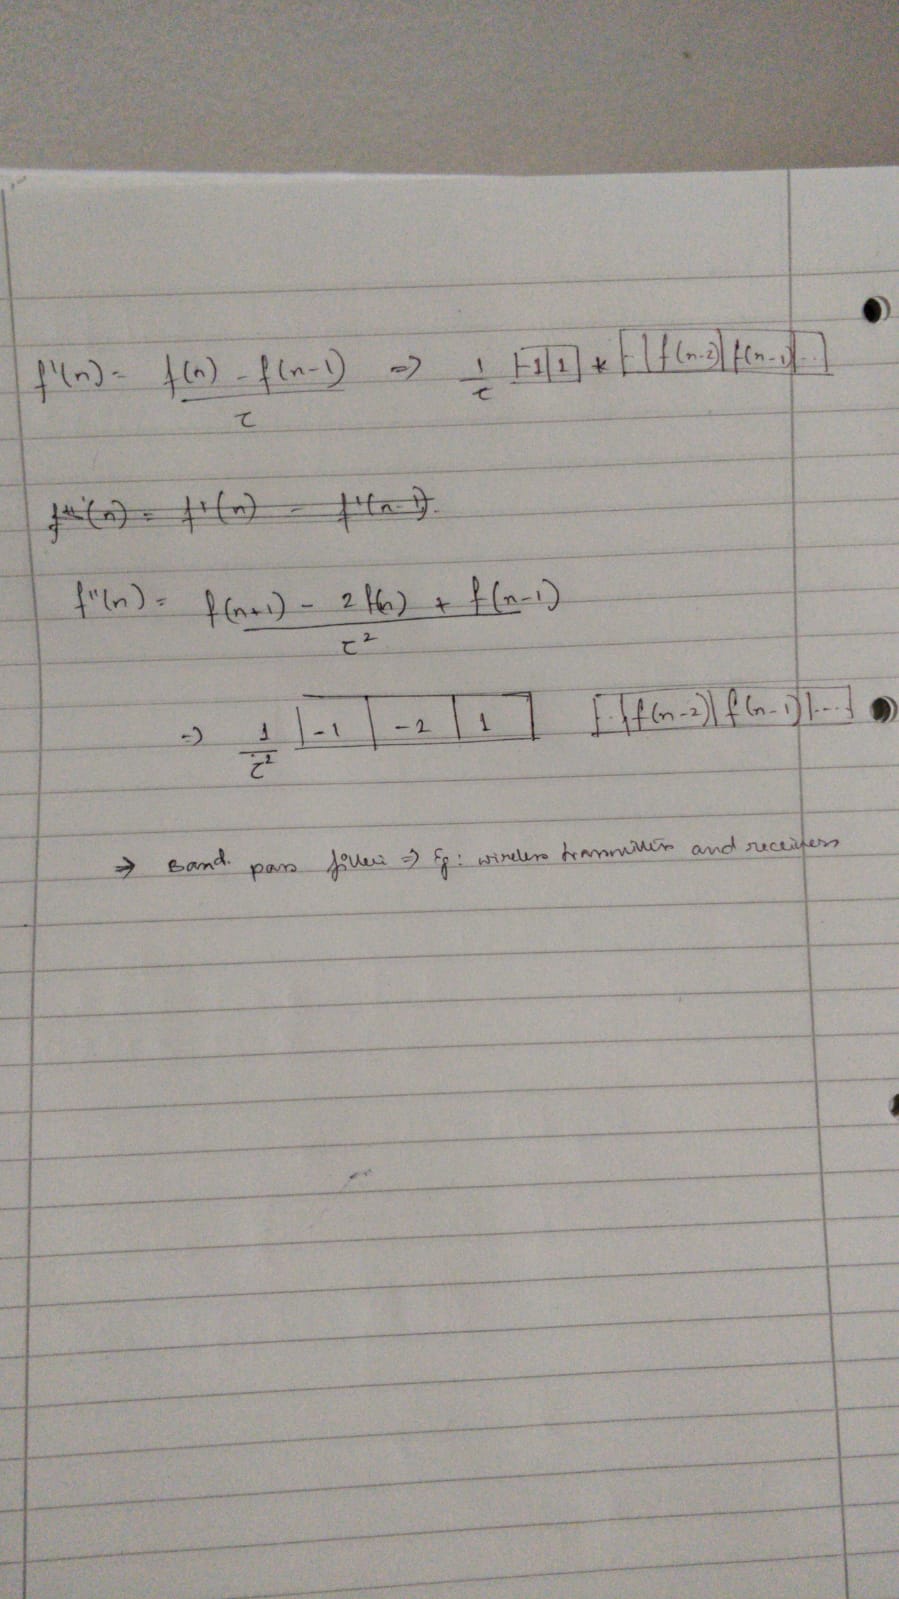 f'(n) = f(n) - f(n-1) / τ ⇒ 1/τ |-1|1| * |..|f(n-2)|f(n-1)|...|
f''(n) = f'(n) - f'(n-1).
f''(n) = f(n+1) - 2f(n) + f(n-1) / τ²
⇒ 1/τ² |-1|-2|1| |..|f(n-2)|f(n-1)|...|
→ Band pass filter ⇒ Eg: wireless transmitters and receivers